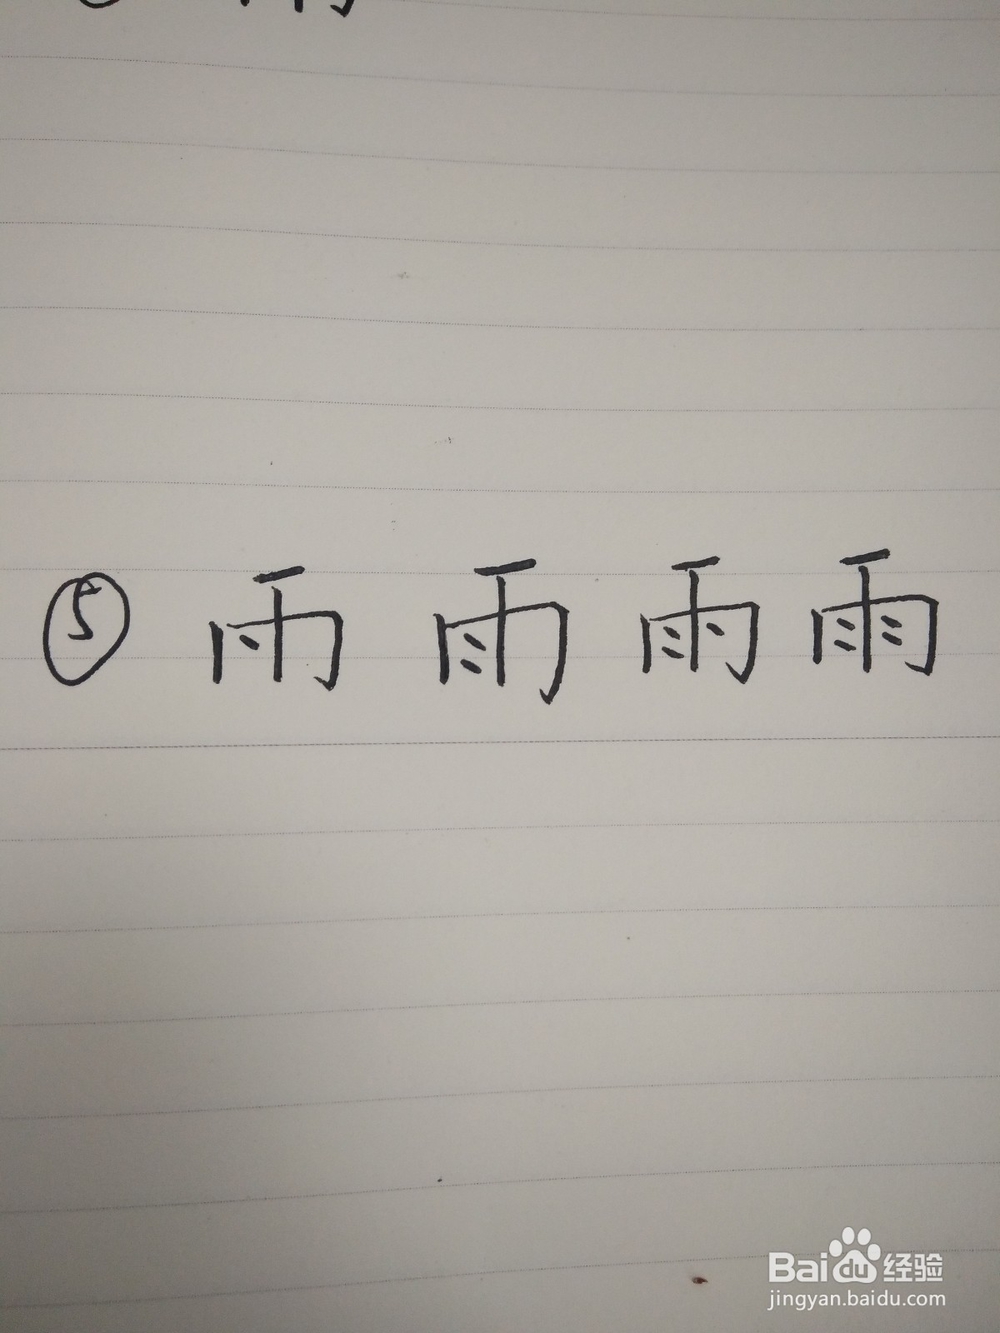 ⑤ 雨 雨 雨 雨
Baidu 经验
jingyan.baidu.com